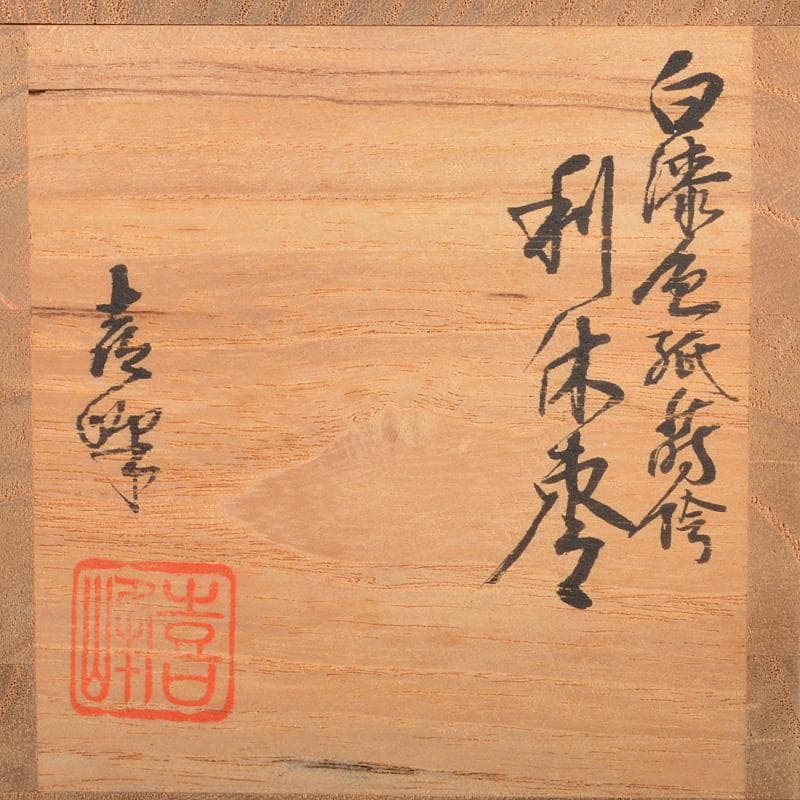 白漆色紙蒔絵
利休棗
喜峰
喜峰